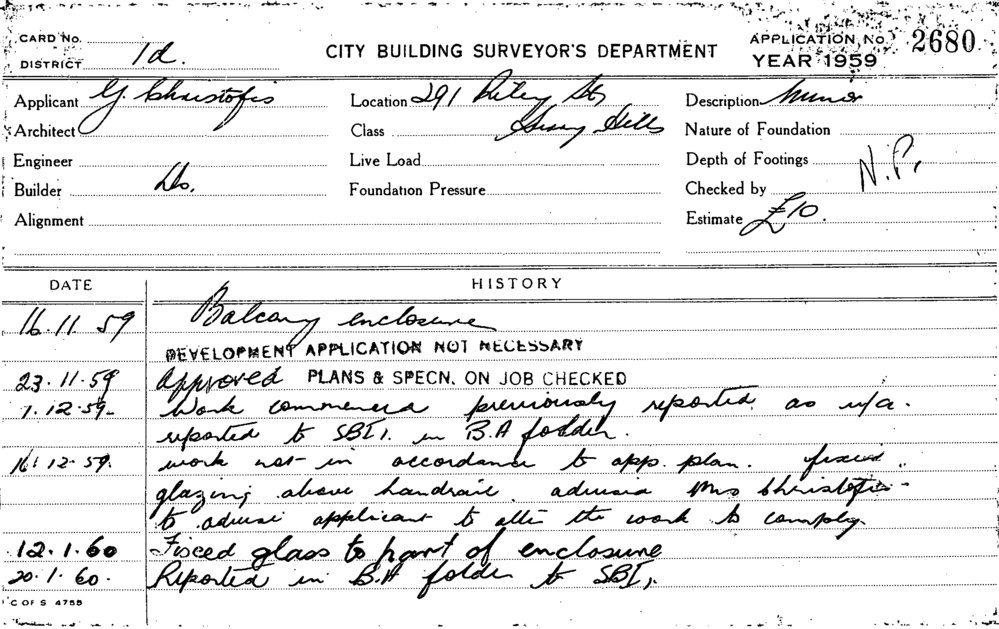 CARD No.
DISTRICT 1d.
CITY BUILDING SURVEYOR'S DEPARTMENT
APPLICATION No. 2680
YEAR 1959
Applicant G. Christofis
Location 291 Riley St,
Description Minor
Architect
Class Surry Hills
Nature of Foundation
Engineer
Live Load
Depth of Footings N.P.
Builder Do.
Foundation Pressure
Checked by
Alignment
Estimate £10.
DATE HISTORY
16.11.59 Balcony enclosure
DEVELOPMENT APPLICATION NOT NECESSARY
23.11.59 Approved PLANS & SPECN. ON JOB CHECKED
1.12.59 Work commenced previously reported as u/a.
reported to SBI1. in B.A folder.
16.12.59. work not in accordance to app. plan. fixed
glazing above handrail. advised Mrs Christofis
to advise applicant to alter the work to comply.
12.1.60 Fixed glass to part of enclosure
20.1.60. Reported in B.A folder to SBI1.
C OF S 4755